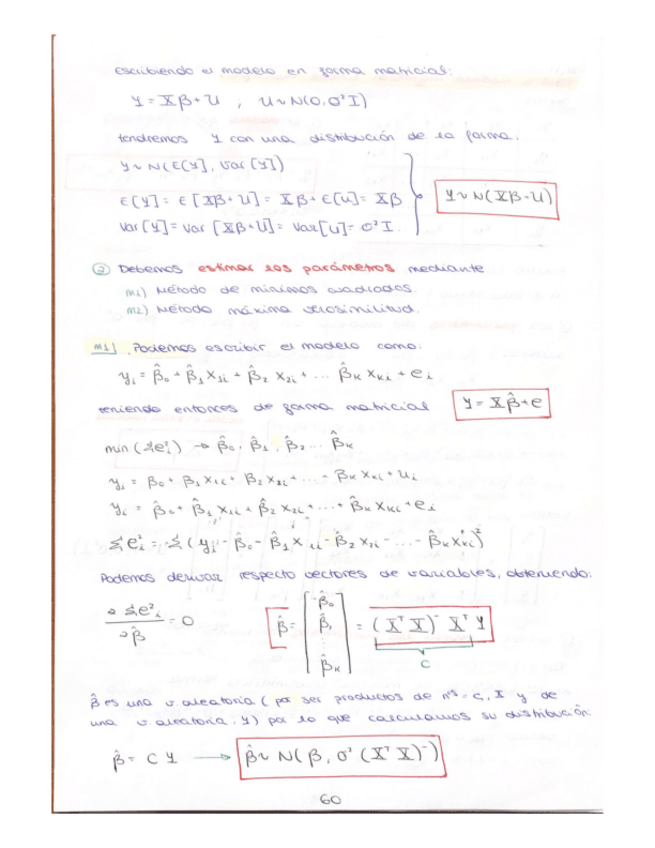 escribiendo el modelo en forma matricial:
Y = Xβ + U , U ~ N(0, σ² I)
tendremos Y con una distribución de la forma:
Y ~ N(E[Y], Var[Y])
E[Y] = E[Xβ + U] = Xβ + E[U] = Xβ
Var[Y] = Var[Xβ + U] = Var[U] = σ² I.
Y ~ N(Xβ - U)
② Debemos estimar los parámetros mediante
m1) Método de mínimos cuadrados.
m2) Método máxima verosimilitud.
m1) Podemos escribir el modelo como:
yᵢ = β̂₀ + β̂₁ x₁ᵢ + β̂₂ x₂ᵢ + ... β̂ₖ xₖᵢ + eᵢ
teniendo entonces de forma matricial Y = Xβ̂ + e
min (Σeᵢ²) → β̂₀, β̂₁, β̂₂ ... β̂ₖ
yᵢ = β₀ + β₁ x₁ᵢ + β₂ x₂ᵢ + ... βₖ xₖᵢ + uᵢ
yᵢ = β̂₀ + β̂₁ x₁ᵢ + β̂₂ x₂ᵢ + ... + β̂ₖ xₖᵢ + eᵢ
Σeᵢ² = Σ(yᵢ - β̂₀ - β̂₁ x₁ᵢ - β̂₂ x₂ᵢ - ... - β̂ₖ xₖᵢ)²
Podemos derivar respecto vectores de variables, obteniendo:
∂Σeᵢ² / ∂β̂ = 0
β̂ = [β̂₀ β̂₁ ⋮ β̂ₖ] = (XᵀX)⁻ Xᵀ Y
C
β̂ es una v. aleatoria (por ser productos de nºs = C, X y de
una v. aleatoria, Y) por lo que calculamos su distribución:
β̂ = C Y → β̂ ~ N(β, σ² (XᵀX)⁻)
60